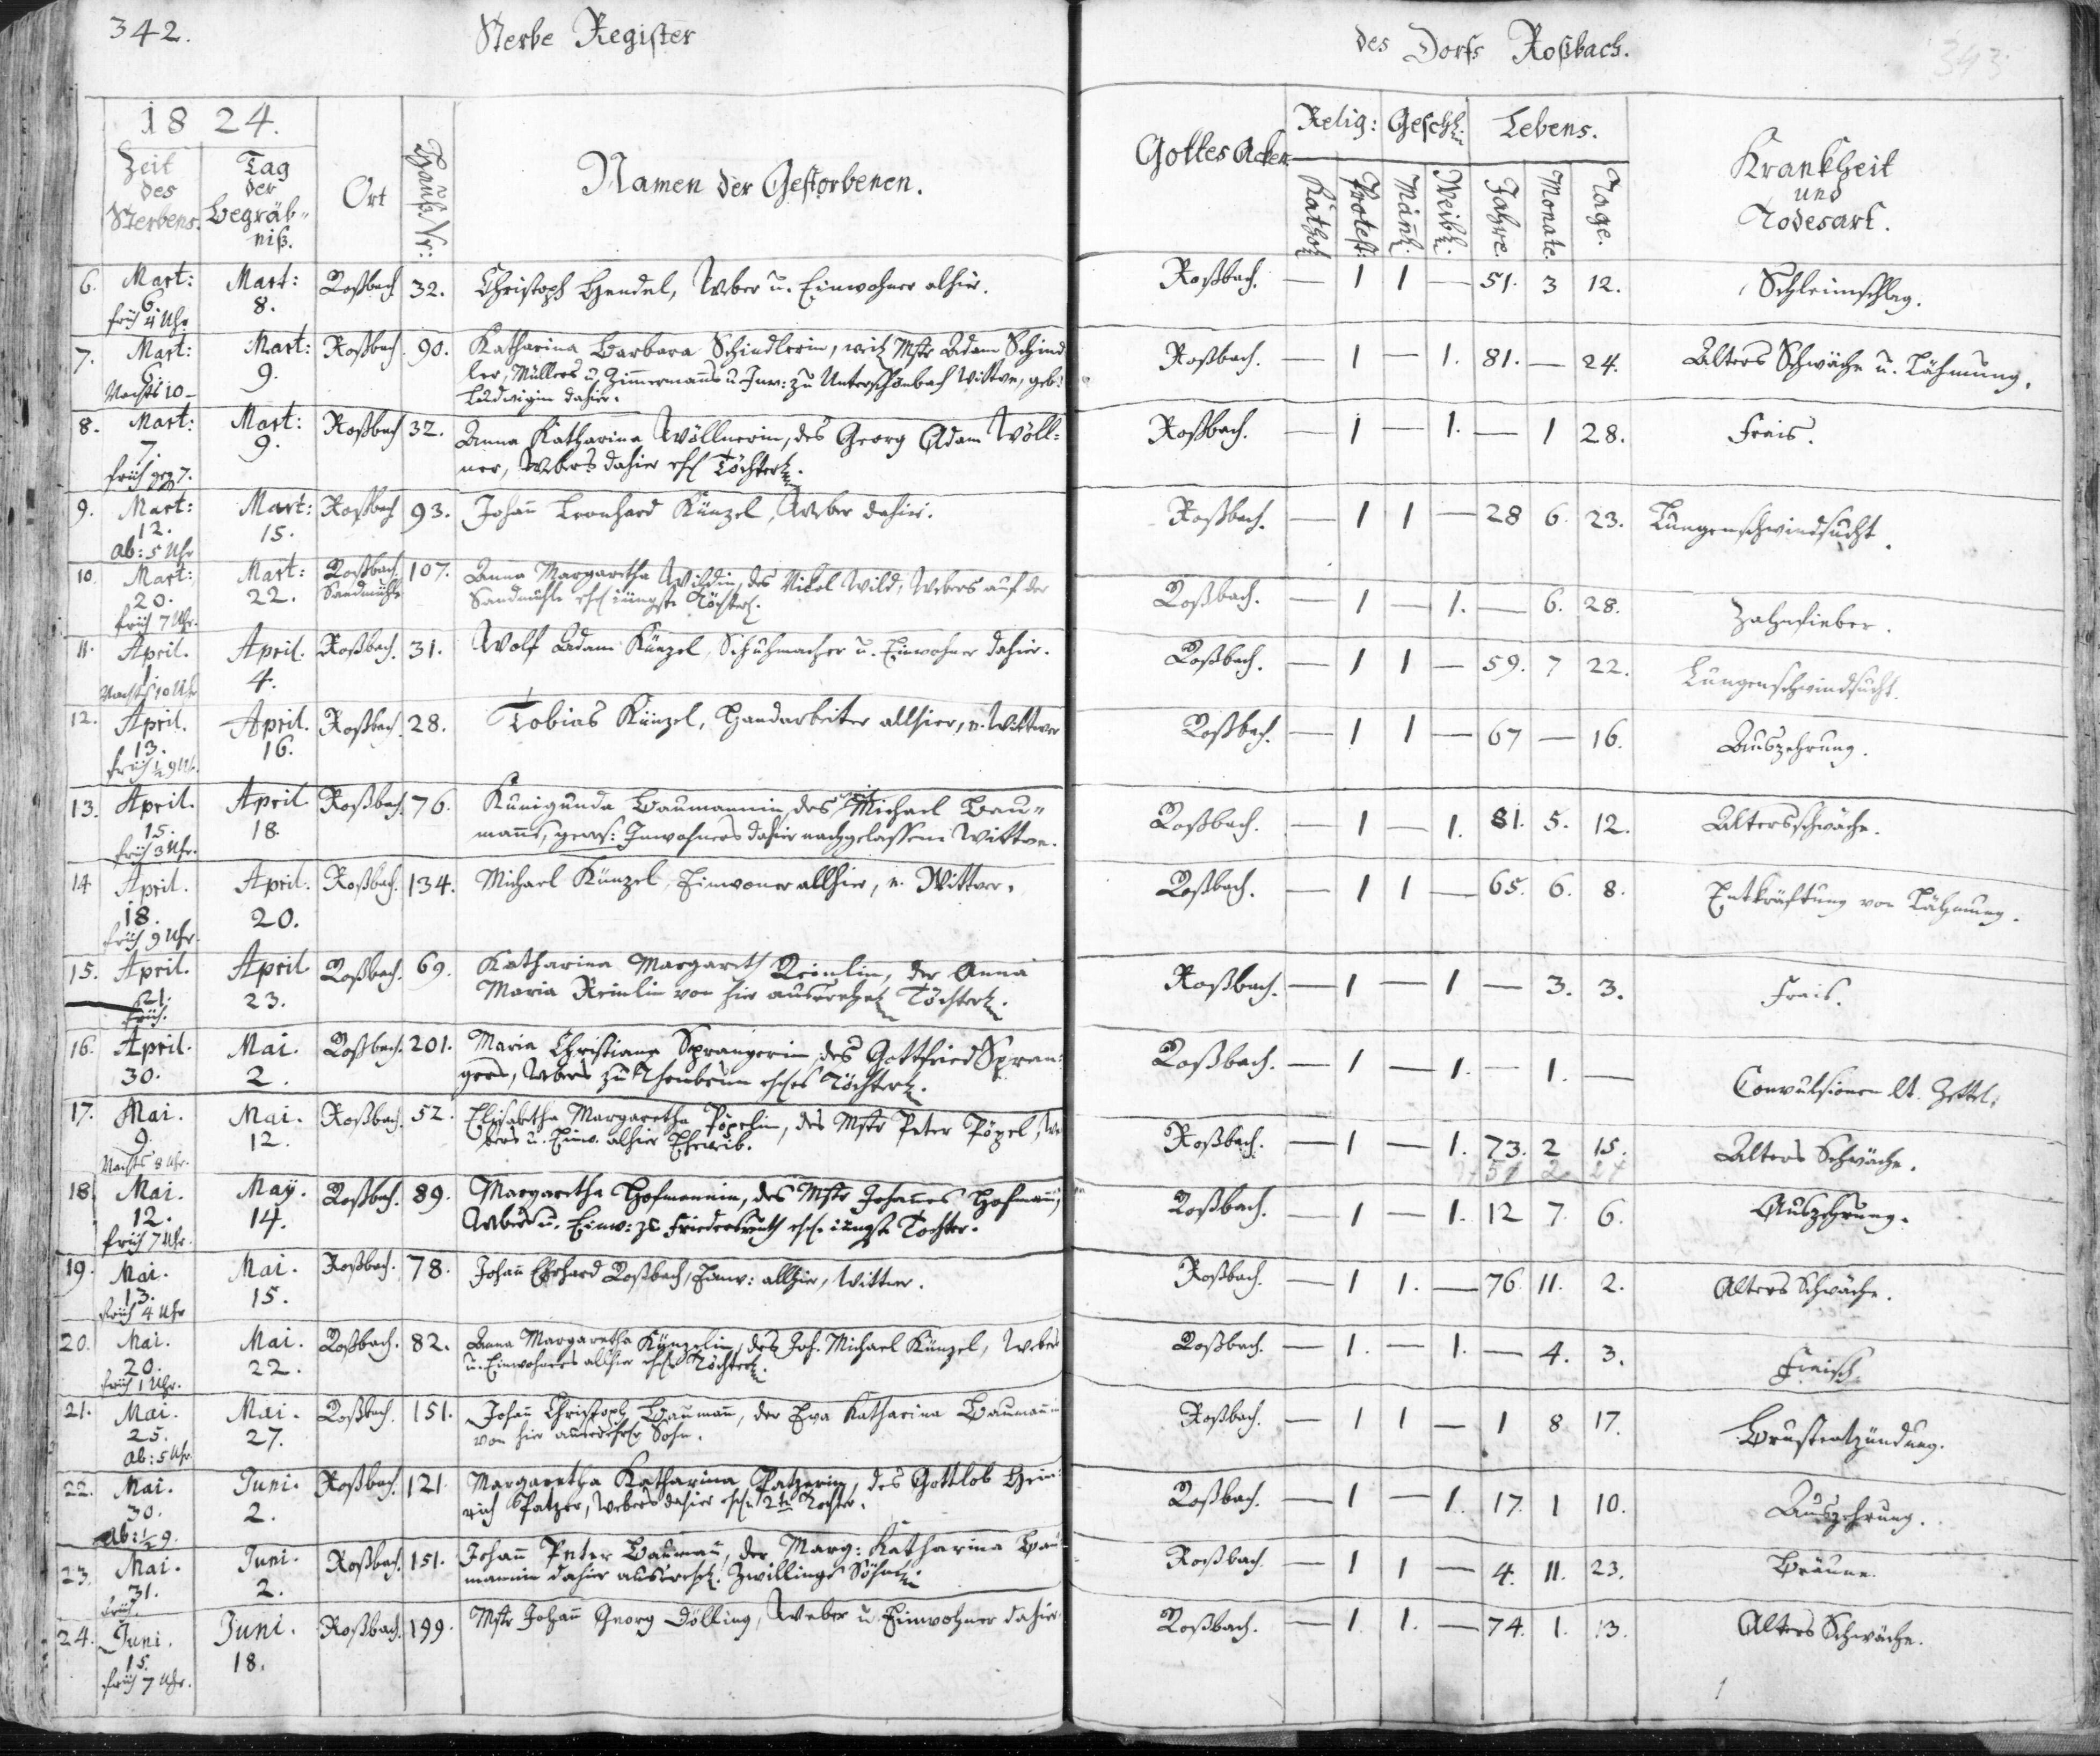 342.
Sterbe Register
des Dorfs Roßbach.
343
1824.
Zeit des Sterbens.
Tag der Begräbniß.
Ort
Hauß. Nr:
Namen der Gestorbenen.
Gottes Acker.
Relig:
Kathol
Protest:
Geschl:
Mänl.
Weibl.
Lebens.
Jahre.
Monate.
Tage.
Krankheit und Todesart.
6. Mart: 6. früh 4 Uhr Mart: 8. Roßbach 32. Christoph Hendel, Weber u. Einwohner alhier. Roßbach. — 1 1 — 51. 3 12. Schleimschlag.
7. Mart: 6. Nachts 10 — Mart: 9. Roßbach. 90. Katharina Barbara Schindlerin, weil. Mstr Adam Schind
ler, Müllers u. Zimmermanns u. Inw: zu Unterschönbach Wittwe, geb:
Ludwigin dahier. Roßbach. — 1 — 1. 81. — 24. Alters Schwäche u. Lähmung.
8. Mart: 7. früh geg 7. Mart: 9. Roßbach 32. Anna Katharina Wöllnerin, des Georg Adam Wöll=
ner, Webers dahier ehl Töchterl. Roßbach. — 1 — 1. — 1 28. Frais.
9. Mart: 12. Ab: 5 Uhr Mart: 15. Roßbach 93. Johañ Leonhard Künzel, Weber dahier. Roßbach. — 1 1 — 28 6. 23. Lungenschwindsucht.
10. Mart: 20. früh 7 Uhr. Mart: 22. Roßbach. Sandmühle 107. Anna Margaretha Wildin, des Nikol Wild, Webers auf der
Sandmühle ehl jüngste Töchterl. Roßbach. — 1 — 1. — 6. 28. Zahnfieber.
11. April. 1. Nachts 10 Uhr April. 4. Roßbach. 31. Wolf Adam Künzel, Schuhmacher u. Einwohner dahier. Roßbach. — 1 1 — 59. 7 22. Lungenschwindsucht.
12. April. 13. früh ½ 9 Uhr. April. 16. Roßbach. 28. Tobias Künzel, Handarbeiter allhier, u. Wittwer Roßbach. — 1 1 — 67 — 16. Auszehrung.
13. April. 15. früh 3 Uhr. April 18. Roßbach. 76. Kunigunda Baumannin, des weil Michael Bau=
manns, gewes: Inwohners dahier nachgelassene Wittwe. Roßbach. — 1 — 1. 81. 5. 12. Altersschwäche.
14. April. 18. früh 9 Uhr. April. 20. Roßbach. 134. Michael Künzel, Einwoner allhier, u. Wittwer. Roßbach. — 1 1 — 65. 6. 8. Entkräftung von Lähmung.
15. April. 21. früh. April. 23. Roßbach. 69. Katharina Margareth Reinlin, der Anna
Maria Reinlin von hier ausserehel Töchterl. Roßbach. — 1 — 1 — 3. 3. Frais.
16. April. 30. Mai. 2. Roßbach. 201. Maria Christiana Sprangerin, des Gottfried Spran=
gers, Webers zu Thonbrunn eheles Töchterl. Roßbach. — 1 — 1. — 1. — Convulsionen lt. Zettel.
17. Mai. 9. Nachts 8 Uhr. Mai. 12. Roßbach. 52. Elisabetha Margaretha Pöpelin, des Mstr Peter Pöpel, We
bers u. Einw. alhier Eheweib. Roßbach. — 1 — 1. 73. 2 15. Alters Schwäche.
18. Mai. 12. früh 7 Uhr. May. 14. Roßbach. 89. Margaretha Hofmannin, des Mstr Johannes Hofmann,
Webers u. Einw: zu Friedersreuth ehel. jüngste Tochter. Roßbach. — 1 — 1. 12 7. 6. Auszehrung.
19. Mai. 13. früh 4 Uhr Mai. 15. Roßbach. 78. Johañ Erhard Roßbach, Einw: allhier, Wittwer. Roßbach. — 1 1. — 76. 11. 2. Alters Schwäche.
20. Mai. 20. früh 1 Uhr. Mai. 22. Roßbach. 82. Anna Margaretha Künzelin, des Joh. Michael Künzel, Webers
u. Einwohners allhier ehel Töchterl. Roßbach. — 1. — 1. — 4. 3. Fraisch.
21. Mai. 25. Ab: 5 Uhr Mai. 27. Roßbach. 151. Johañ Christoph Baumañ, der Eva Katharina Baumañin
von hier ausserehel Sohn. Roßbach. — 1 1 — 1 8 17. Brustentzündung.
22. Mai. 30. Ab: ½ 9. Juni. 2. Roßbach. 121. Margaretha Katharina Patzerin, des Gottlob Hein=
rich Patzer, Webers dahier ehel 2te Tochter. Roßbach. — 1 — 1. 17. 1 10. Auszehrung.
23. Mai. 31. früh. Juni. 2. Roßbach. 151. Johañ Peter Baumañ, der Marg: Katharina Bau=
mannin dahier ausserehel. Zwillings Söhnl. Roßbach. — 1 1 — 4. 11. 23. Bräune.
24. Juni. 15. früh 7 Uhr. Juni. 18. Roßbach. 199. Mstr Johañ Georg Dölling, Weber u. Einwohner dahier. Roßbach. — 1. 1. — 74. 1. 13. Alters Schwäche.